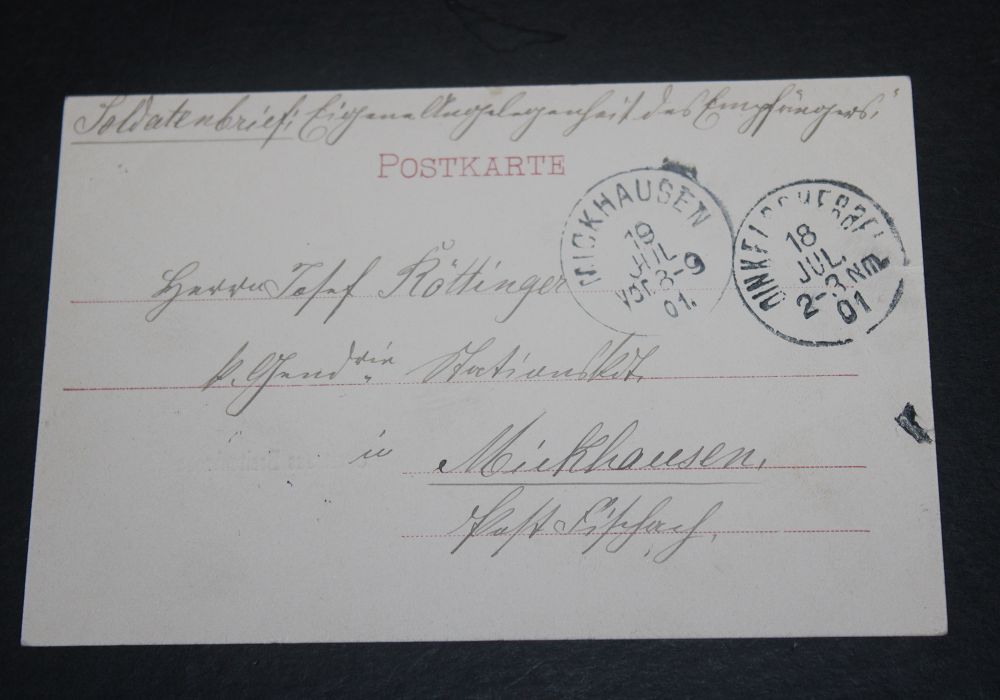 Soldatenbrief; Eigene Angelegenheit des Empfängers."
POSTKARTE
MICKHAUSEN
19
JUL
Vor. 8-9
01.
DINKELSCHERBEN
18
JUL
2-3 NM
01
Herrn Josef Röttinger
k. Gendrie Stations Kdt.
in Mickhausen,
Post Fischach,